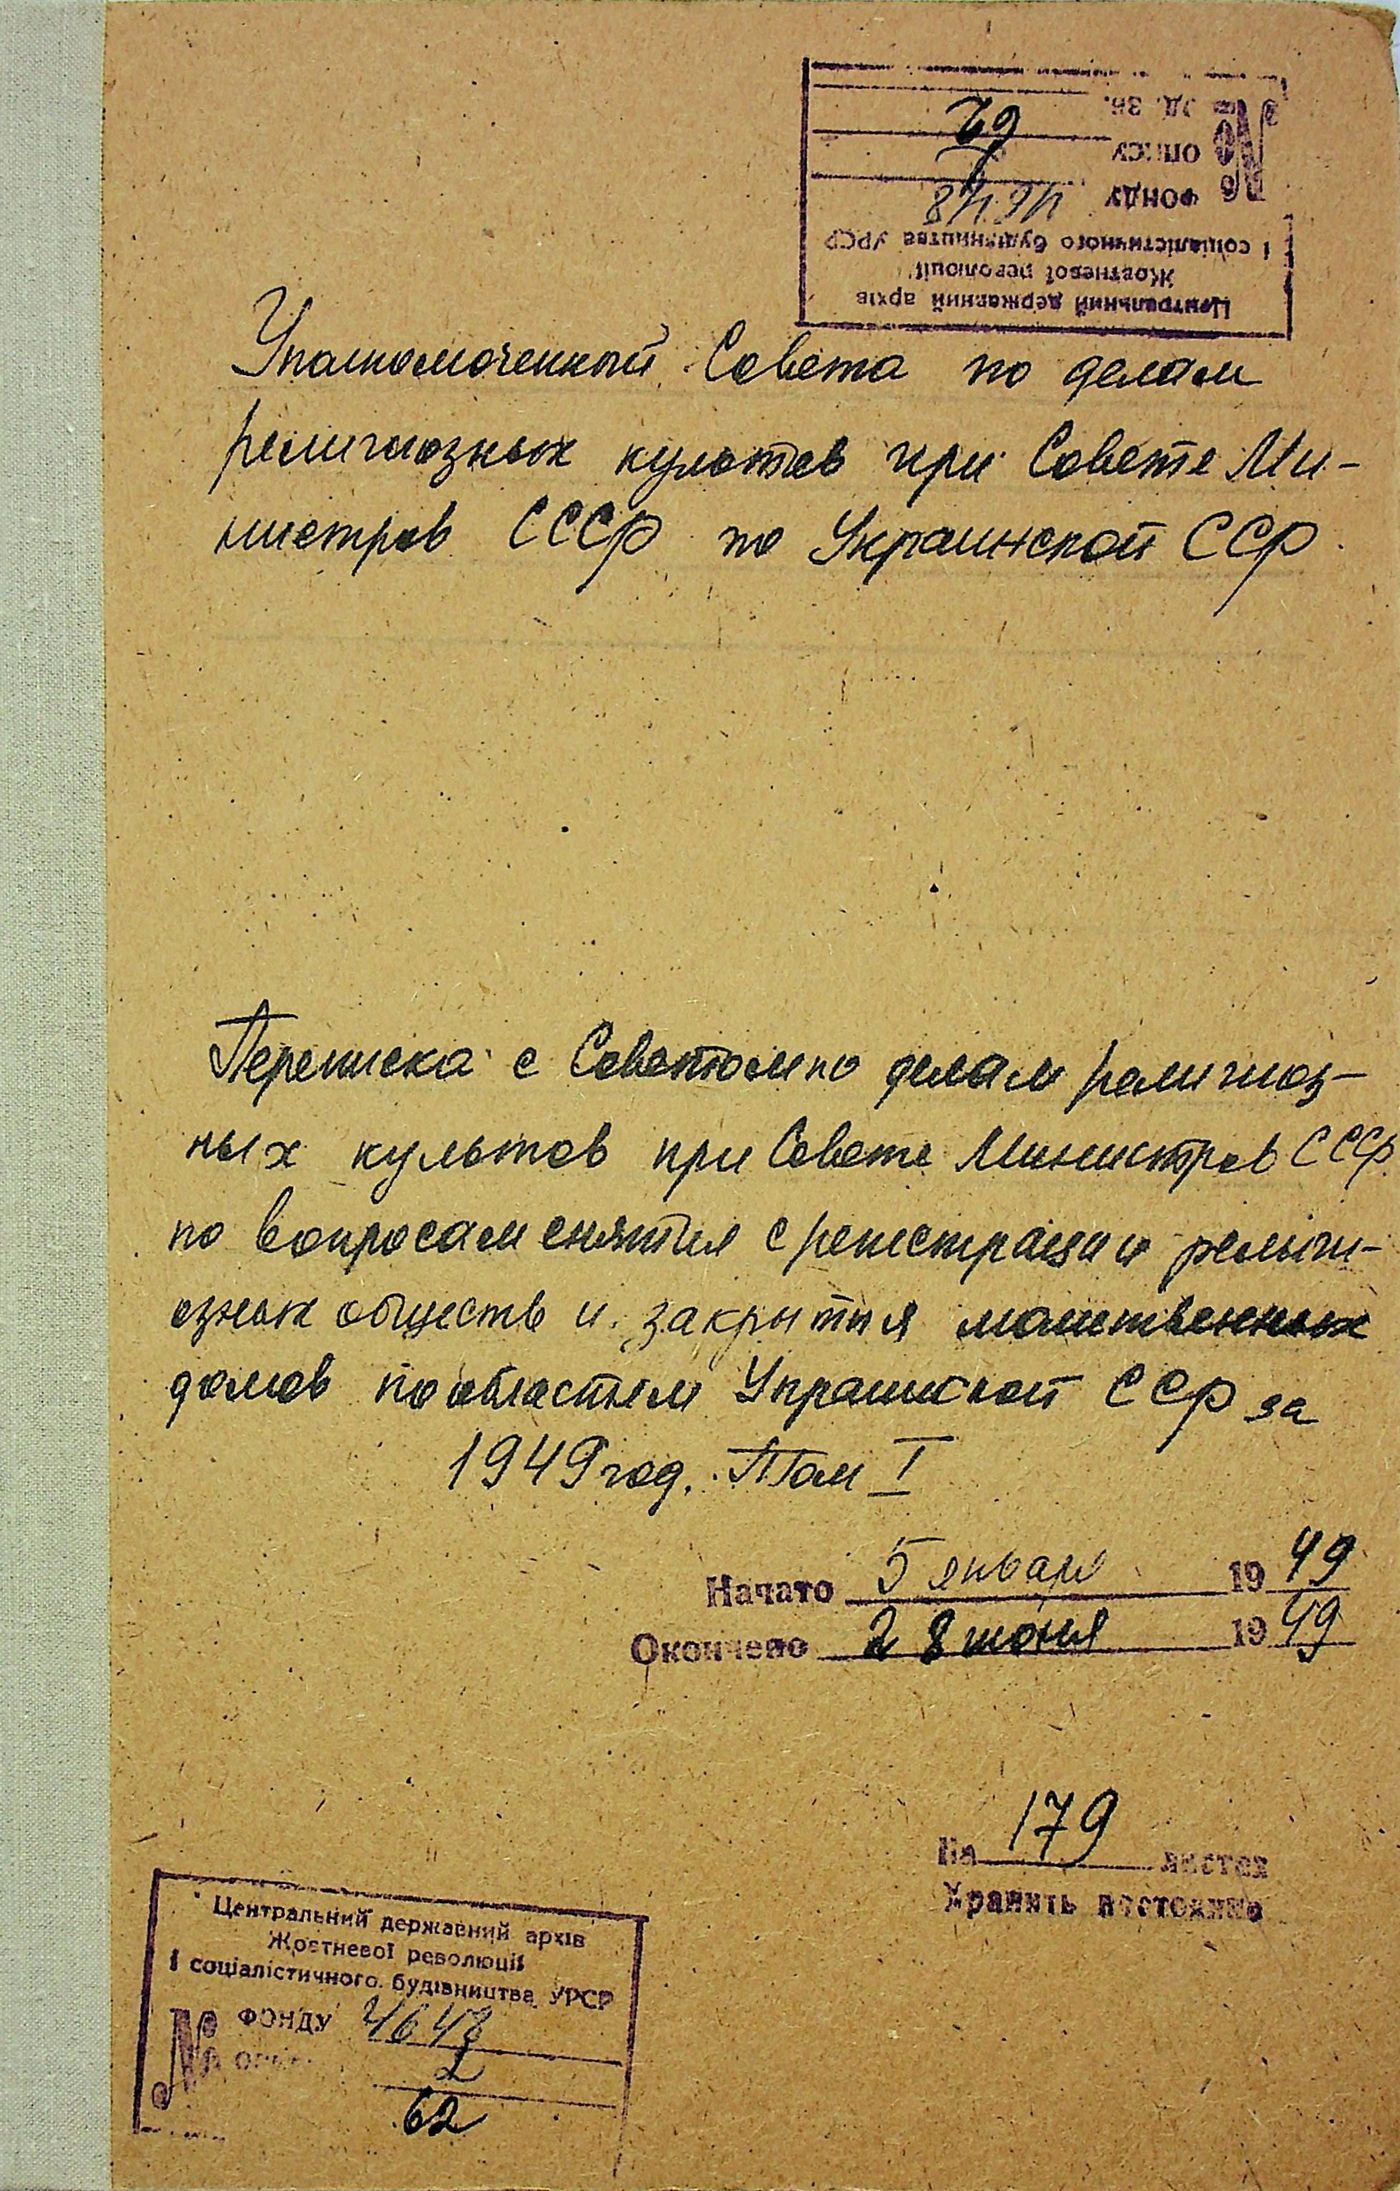 Центральний державний архів
Жовтневої революції
і соціалістичного будівництва УРСР
№ ФОНДУ 4648
ОПИСУ 2
ОД. ЗБ. 62
Уполномоченный Совета по делам
религиозных культов при Совете Ми-
нистров СССР по Украинской ССР
Переписка с Советом по делам религиоз-
ных культов при Совете Министров СССР
по вопросам снятия с регистрации религи-
озных обществ и закрытия молитвенных
домов по областям Украинской ССР за
1949 год. Том I
Начато 5 января 1949
Окончено 28 июня 1949
На 179 листах
Хранить постоянно
Центральний державний архів
Жовтневої революції
і соціалістичного будівництва УРСР
№ ФОНДУ 4648
2
62